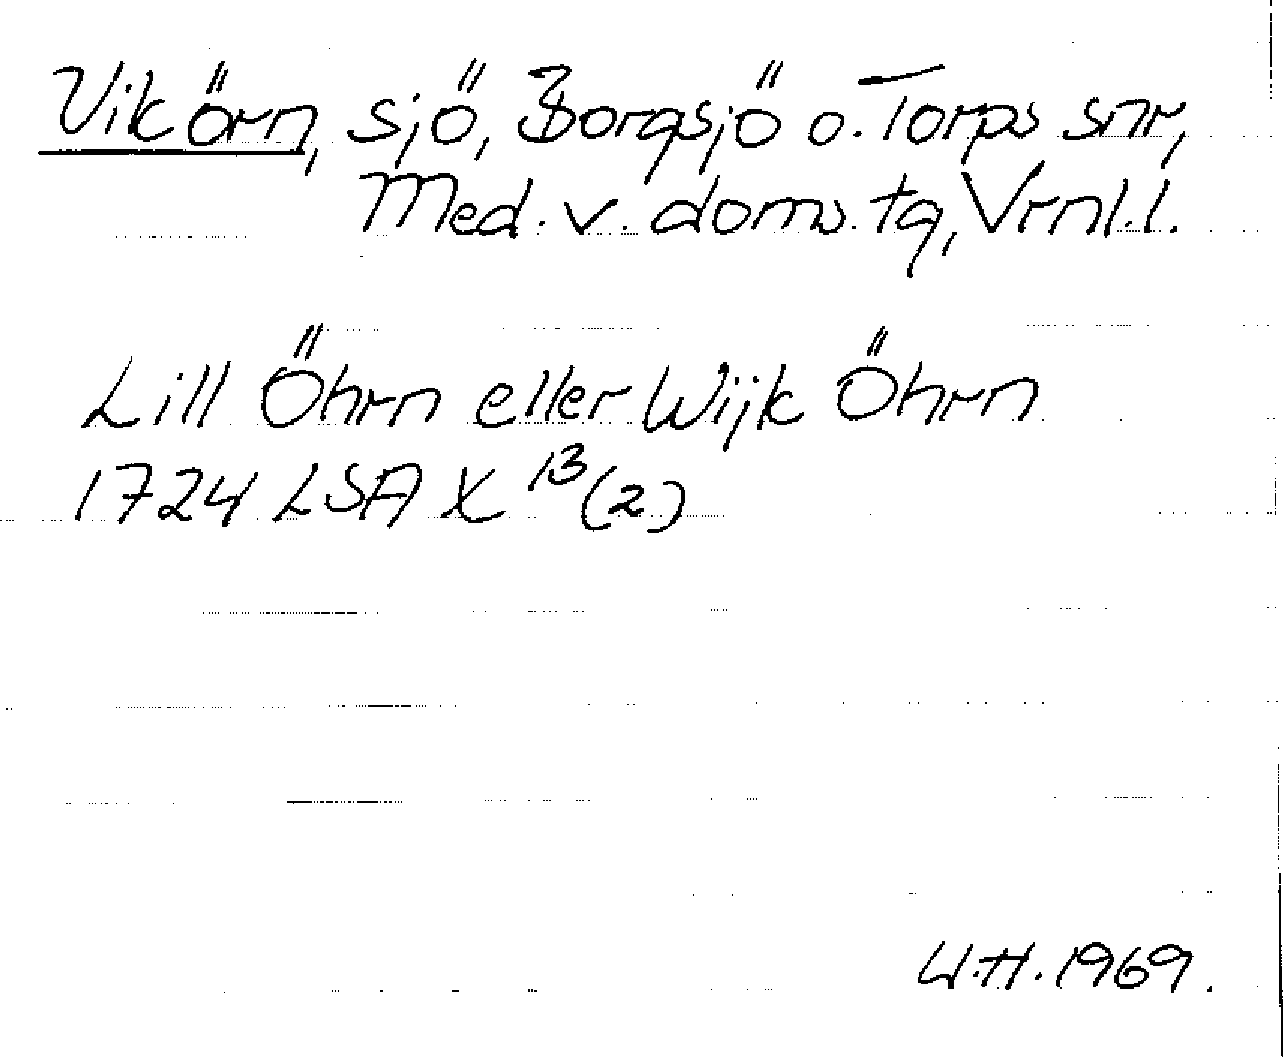 Vikörn, sjö, Borgsjö o. Torps snr,
Med. v. doms. tg, Vrnl. l.
Lill Öhrn eller Wijk Öhrn
1724 LSA X 13 (2)
U.H. 1969.